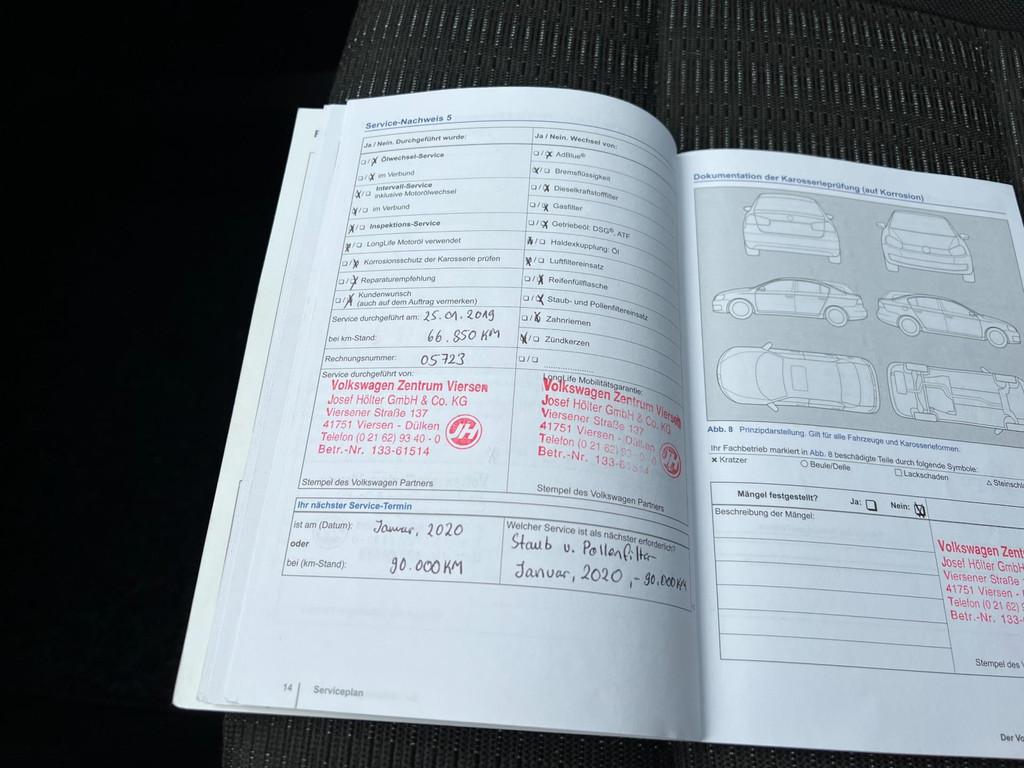 Service-Nachweis 5
Ja / Nein. Durchgeführt wurde:
☐/☒ Ölwechsel-Service
☐/☒ im Verbund
☒/☐ Intervall-Service
inklusive Motorölwechsel
☒/☐ im Verbund
☒/☐ Inspektions-Service
☒/☐ LongLife Motoröl verwendet
☐/☒ Korrosionsschutz der Karosserie prüfen
☐/☒ Reparaturempfehlung
☐/☒ Kundenwunsch
(auch auf dem Auftrag vermerken)
Service durchgeführt am: 25.01.2019
bei km-Stand: 66.850 KM
Rechnungsnummer: 05723
Service durchgeführt von:
Volkswagen Zentrum Viersen
Josef Hölter GmbH & Co. KG
Viersener Straße 137
41751 Viersen - Dülken
Telefon (0 21 62) 93 40 - 0
Betr.-Nr. 133-61514
Stempel des Volkswagen Partners
Ja / Nein. Wechsel von:
☐/☒ AdBlue®
☒/☐ Bremsflüssigkeit
☐/☒ Dieselkraftstofffilter
☐/☒ Gasfilter
☐/☒ Getriebeöl: DSG®, ATF
☒/☐ Haldexkupplung: Öl
☒/☐ Luftfiltereinsatz
☐/☒ Reifenfüllflasche
☐/☒ Staub- und Pollenfiltereinsatz
☐/☒ Zahnriemen
☒/☐ Zündkerzen
☐/☐
LongLife Mobilitätsgarantie:
Volkswagen Zentrum Viersen
Josef Hölter GmbH & Co. KG
Viersener Straße 137
41751 Viersen - Dülken
Telefon (0 21 62) 93 - 0
Betr.-Nr. 133-61514
Stempel des Volkswagen Partners
Ihr nächster Service-Termin
ist am (Datum): Januar, 2020
oder
bei (km-Stand): 90.000 KM
Welcher Service ist als nächster erforderlich?
Staub u. Pollenfilter
Januar, 2020, - 90.000 KM
14 Serviceplan
Dokumentation der Karosserieprüfung (auf Korrosion)
Abb. 8 Prinzipdarstellung. Gilt für alle Fahrzeuge und Karosserieformen.
Ihr Fachbetrieb markiert in Abb. 8 beschädigte Teile durch folgende Symbole:
× Kratzer ○ Beule/Delle ☐ Lackschaden △ Steinschla
Mängel festgestellt? Ja: ☐ Nein: ☒
Beschreibung der Mängel:
Volkswagen Zent
Josef Hölter GmbH
Viersener Straße
41751 Viersen -
Telefon (0 21 62)
Betr.-Nr. 133-
Stempel des V
Der Vo